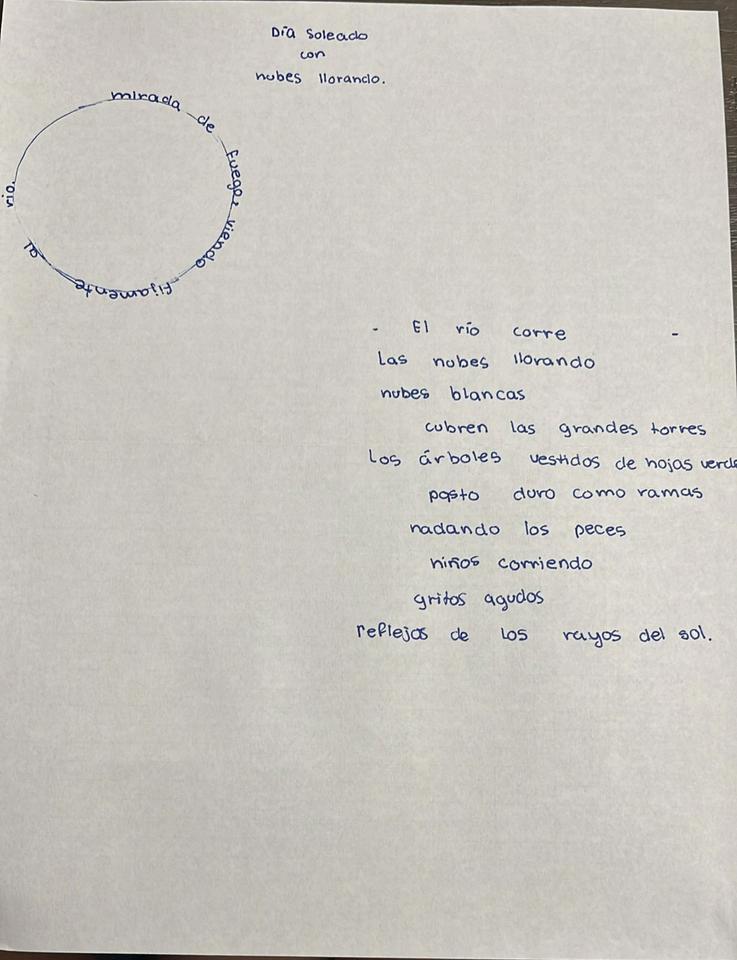 Día Soleado
con
nubes llorando.
mirada de fuego, viendo fijamente al río.
- El río corre -
Las nubes llorando
nubes blancas
cubren las grandes torres
Los árboles vestidos de hojas verde
pasto duro como ramas
nadando los peces
niños corriendo
gritos agudos
reflejos de los rayos del sol.